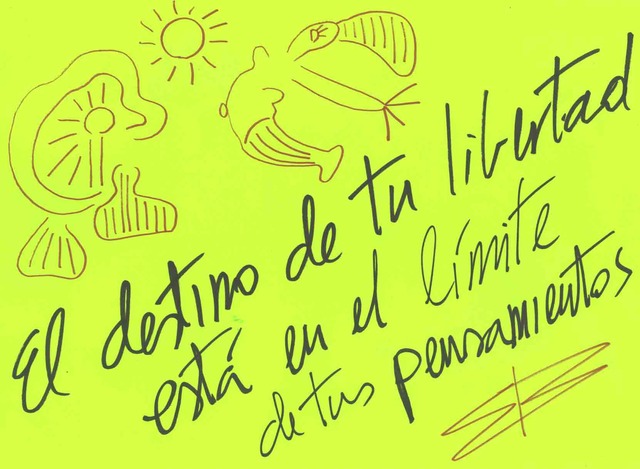 El destino de tu libertad
está en el límite
de tus pensamientos